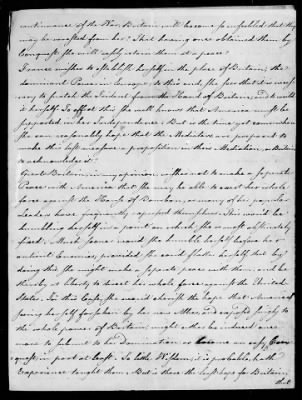 continuance of the War, Britain will become so enfeebled that they
may be wrested from her. That having once obtained them by
Conquest she will safely retain them at a peace.
France wishes to establish herself in the place of Britain, the
dominant Power in Europe; to this end, she sees that it is necessary
to protect the Trident from the Hand of Britain, and to wield
it herself. To effect this she well knows that America must be
supported in her Independence. But is the time yet come when
she can reasonably hope that the Mediators are prepared to
make this last measure a proposition in their Mediation, or Britain
to acknowledge it
Great Britain, in my opinion, wishes not to make a separate
Peace with America that she may be able to exert her whole
force against the House of Bourbon, as many of her popular
Leaders have frequently expressed themselves. This would be
humbling herself in a point on which, she is most obstinately
fixed. Much sooner would she humble herself before her
antient Enemies, provided she could flatter herself that by
doing this she might make a separate peace with them and be
thereby at liberty to direct her whole force against the United
States. In this Case, she would cherish the hope that America
seeing herself forsaken by her new Allies, and exposed singly to
the whole power of Britain, might either be induced once
more to submit to her Domination or become an easy Con-
quest, in part at least. So little Wisdom, it is probable, hath
Experience taught them. But is there the least hope for Britain
that